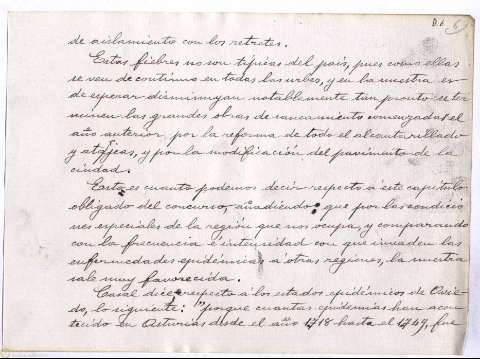 D.6. 6
de aislamiento con los retretes.
Estas fiebres no son típicas del país, pues como ellas
se ven de contínuo en todas las urbes, y en la nuestra es
de esperar disminuyan notablemente tan pronto se ter
minen las grandes obras de saneamiento comenzadas el
año anterior, por la reforma de todo el alcantarillado
y atarjeas, y por la modificación del pavimento de la
ciudad.
Esto es cuanto podemos decir respecto á este capítulo
obligado del concurso, añadiendo, que por las condicio
nes especiales de la región que nos ocupa, y comparando
con la frecuencia é intensidad con que invaden las
enfermedades epidémicas á otras regiones, la nuestra
sale muy favorecida.
Casal dice respecto á los estados epidémicos de Ovie-
do, lo siguiente: "porque cuantas epidemias han acon
tecido en Asturias desde el año 1718 hasta el 1749, fue